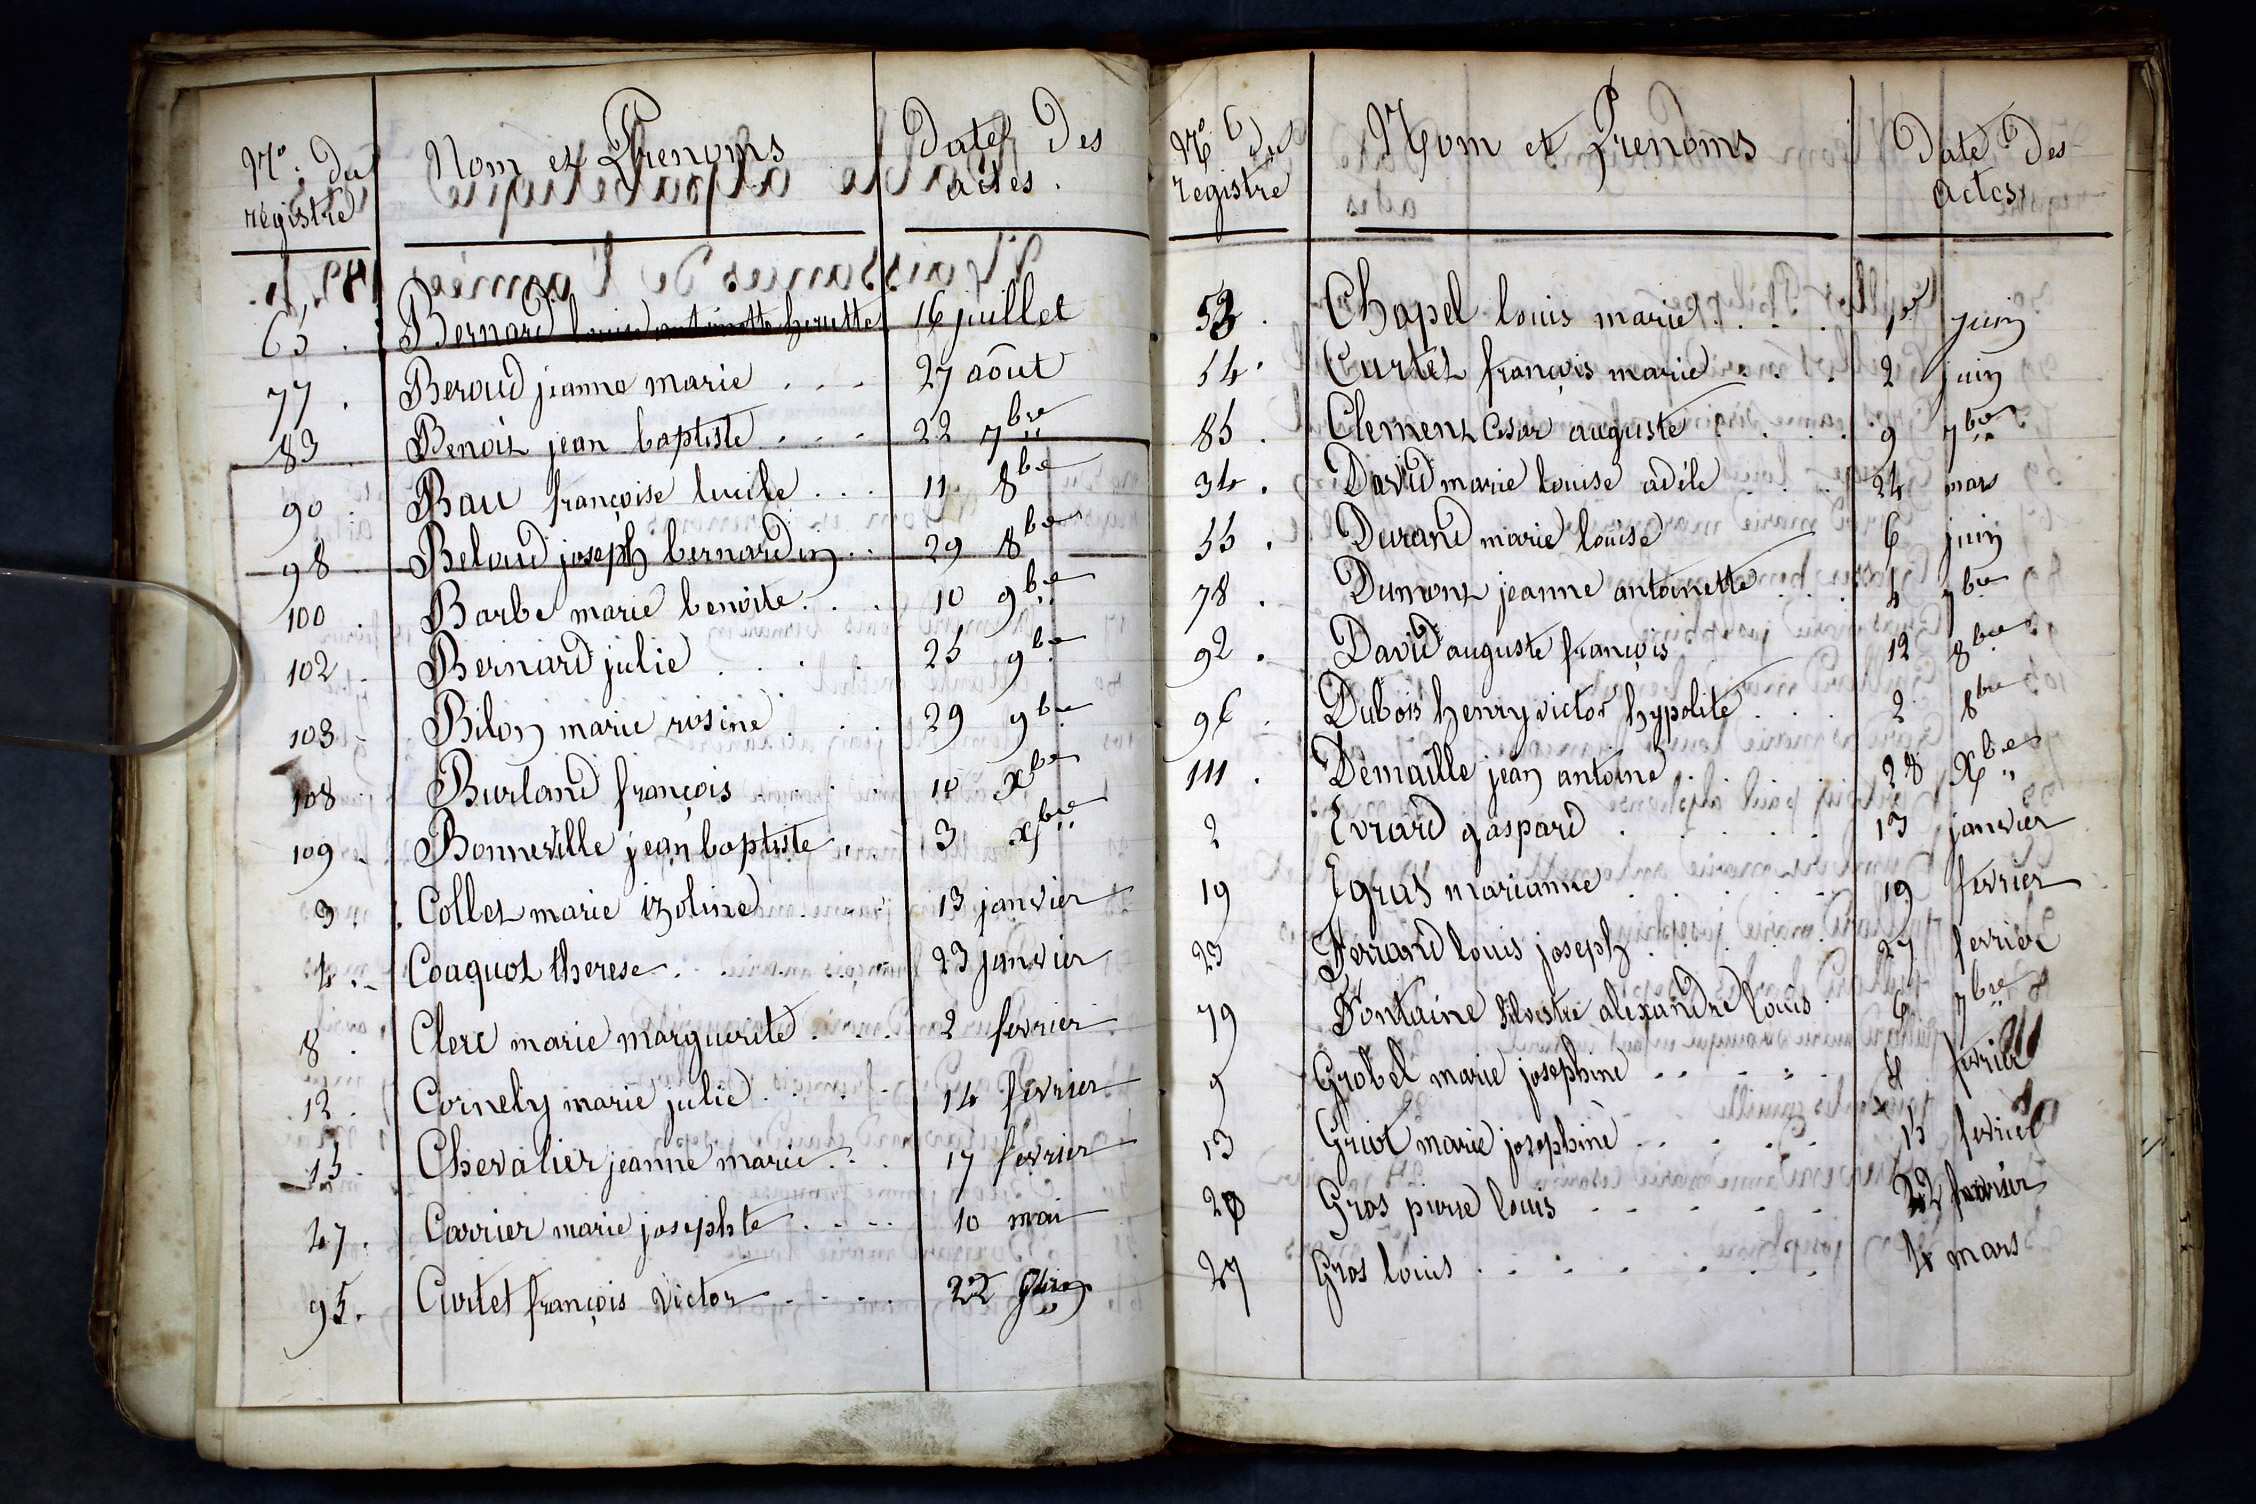 N.º du registre
Nom et Prenoms
Date des actes.
65. Bernard louise antoinette 16 juillet
77. Beroud jeanne marie . . . 27 août
83. Benoit jean baptiste . . . 22 7bre
90. Bau françoise lucile . . . 11 8bre
98 Belaud joseph bernardin . . 29 8bre
100. Barbe marie benoite . . . 10 9bre
102. Bernard julie . . . . 25 9bre
103 Bilon marie rosine . . . 29 9bre
108. Burland françois . . . 10 Xbre
109. Bonneville jean baptiste . . 3 Xbre
3. Collet marie izoline . . . 13 janvier
4. Coaquoz therese . . . 23 janvier
8. Clerc marie marguerite . . . 2 fevrier
12. Cornely marie julie . . . . 14 fevrier
15. Chevalier jeanne marie . . . 17 fevrier
47. Carrier marie josephte . . . . 10 mai
95. Curtet françois victor . . . . 22
N.º du registre
Nom et Prenoms
Date des actes
53. Chapel louis marie . . . . 1er juin
54. Curtet françois marie . . . 2 juin
85. Clement Cesar auguste . . . . 9 7bre
34. David marie louise adéle . . . 24 mars
55. Durand marie louise 6 juin
78. Dumont jeanne antoinette . . . 4 7bre
92. David auguste françois 12 8bre
96. Dubois henry victor hypolite . . . 2 8bre
111. Demaille jean antoine . . . 28 Xbre
2 Evrard gaspard . . . . . 13 janvier
19 Egras marianne . . . . . 19 fevrier
23 Ferrand louis joseph . . . . 27 fevrier
79 Fontaine silvestre alexandre louis 6 7bre
9 Grobel marie josephine . . . . 4 fevrier
13 Griot marie josephine . . . . 15 fevrier
20 Gros pierre louis . . . . . 22 fevrier
27 Gros louis . . . . . . . 4 mars